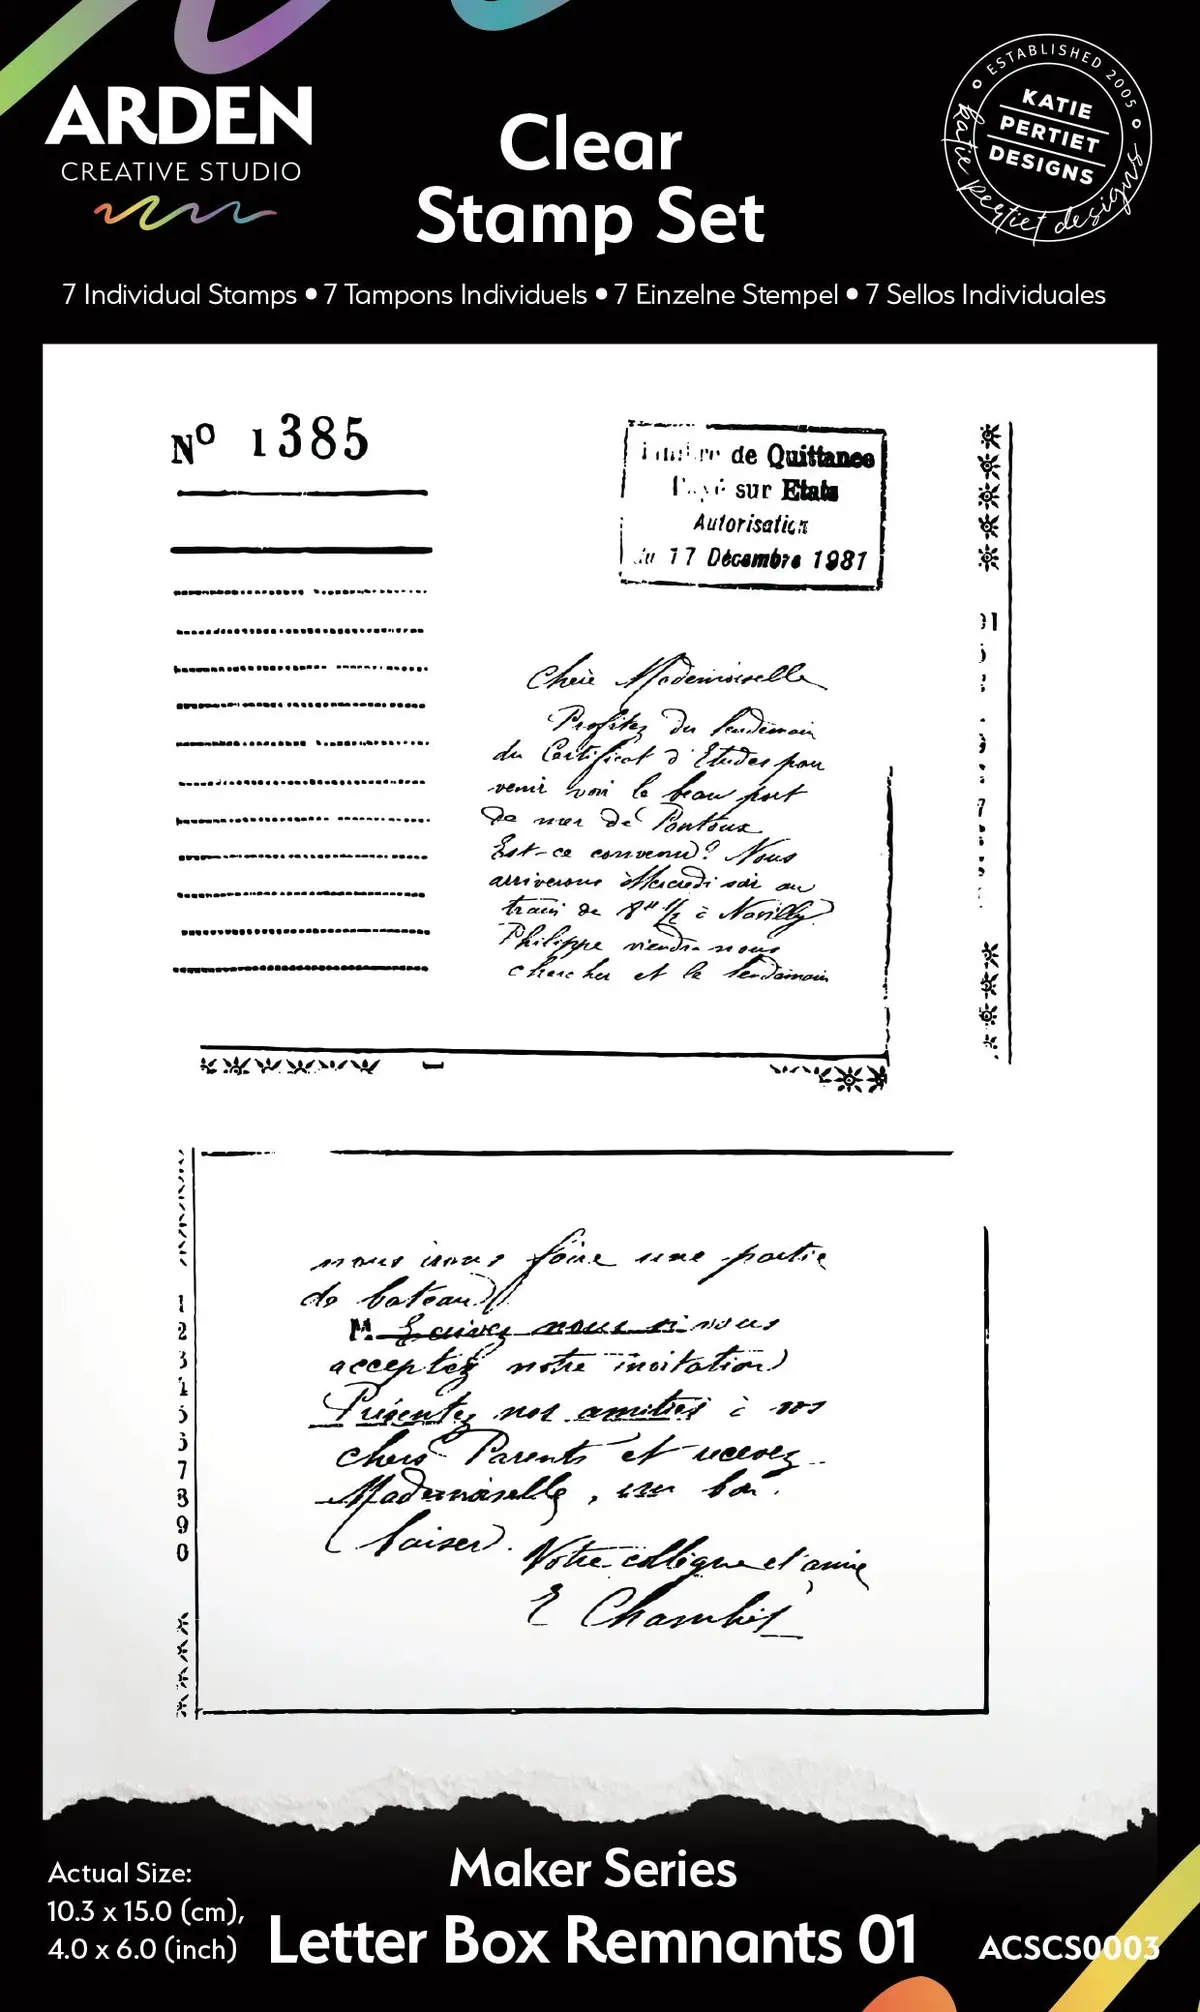 ARDEN
CREATIVE STUDIO
Clear
Stamp Set
ESTABLISHED 2005
KATIE
PERTIET
DESIGNS
katie pertiet designs
7 Individual Stamps • 7 Tampons Individuels • 7 Einzelne Stempel • 7 Sellos Individuales
Nº 1385
de Quittance
sur Etats
Autorisation
du 17 Décembre 1981
Chère Mademoiselle
Profitez du lendemain
du Certificat d'Etudes pour
venir voir le beau port
de mer de Pontoux
Est-ce convenu? Nous
arriverons Mercredi soir au
train de 8H 1/2 à Navilly
Philippe viendra nous
chercher et le lendemain
nous irons faire une partie
de bateau
Ecrivez nous si vous
acceptez notre invitation
Présentez nos amitiés à vos
chers Parents et recevez
Mademoiselle, un bon
baiser.
Votre collègue et amie
E
7
8
9
0
Actual Size:
10.3 x 15.0 (cm),
4.0 x 6.0 (inch)
Maker Series
Letter Box Remnants 01
ACSCS0003